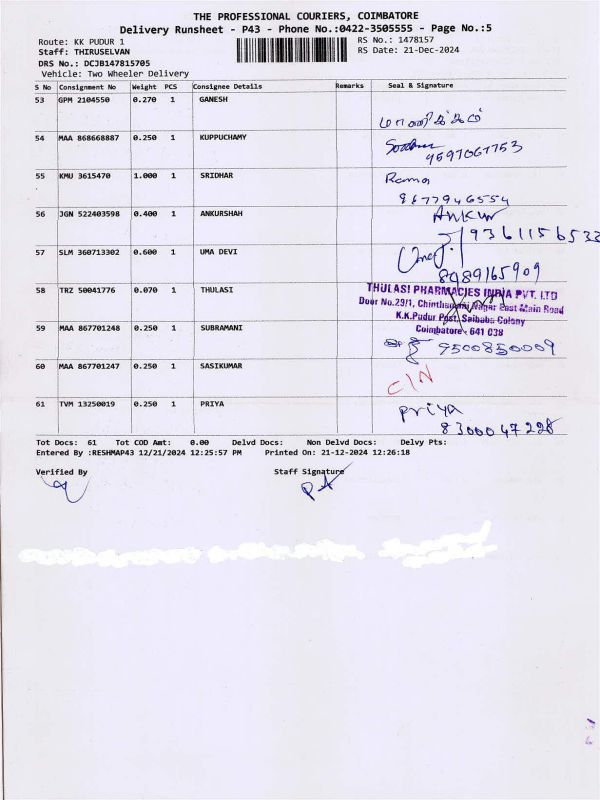 THE PROFESSIONAL COURIERS, COIMBATORE
Delivery Runsheet - P43 - Phone No.:0422-3505555 - Page No.:5
Route: KK PUDUR 1
RS No.: 1478157
Staff: THIRUSELVAN
RS Date: 21-Dec-2024
DRS No.: DCJB147815705
Vehicle: Two Wheeler Delivery
S No Consignment No Weight PCS Consignee Details Remarks Seal & Signature
53 GPM 2104550 0.270 1 GANESH
மாணிக்கம்
54 MAA 868668887 0.250 1 KUPPUCHAMY
9597067753
55 KMU 3615470 1.000 1 SRIDHAR Rama
9677946554
56 JGN 522403598 0.400 1 ANKURSHAH ANKUR
9361156533
57 SLM 360713302 0.600 1 UMA DEVI
8989165909
58 TRZ 50041776 0.070 1 THULASI THULASI PHARMACIES INDIA PVT. LTD
Door No.29/1, Chinthamani Nagar East Main Road
K.K.Pudur Post, Saibaba Colony
Coimbatore - 641 038
59 MAA 867701248 0.250 1 SUBRAMANI
9500850009
60 MAA 867701247 0.250 1 SASIKUMAR
C/N
61 TVM 13250019 0.250 1 PRIYA Priya
8300047228
Tot Docs: 61 Tot COD Amt: 0.00 Delvd Docs: Non Delvd Docs: Delvy Pts:
Entered By :RESHMAP43 12/21/2024 12:25:57 PM Printed On: 21-12-2024 12:26:18
Verified By Staff Signature